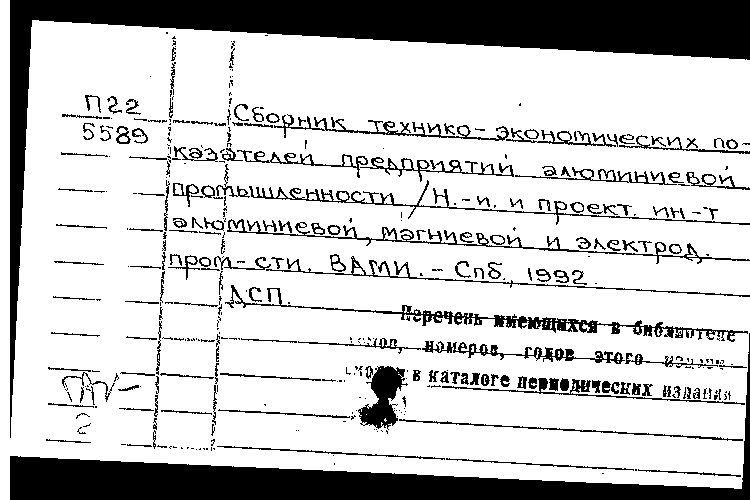 П22
5589
Сборник технико-экономических по-
казателей предприятий алюминиевой
промышленности /Н.-и. и проект. ин-т
алюминиевой, магниевой и электрод.
пром-сти. ВАМИ. - Спб., 1992.
ДСП.
Перечень имеющихся в библиотеке
номеров, годов этого
в каталоге периодических издании
2